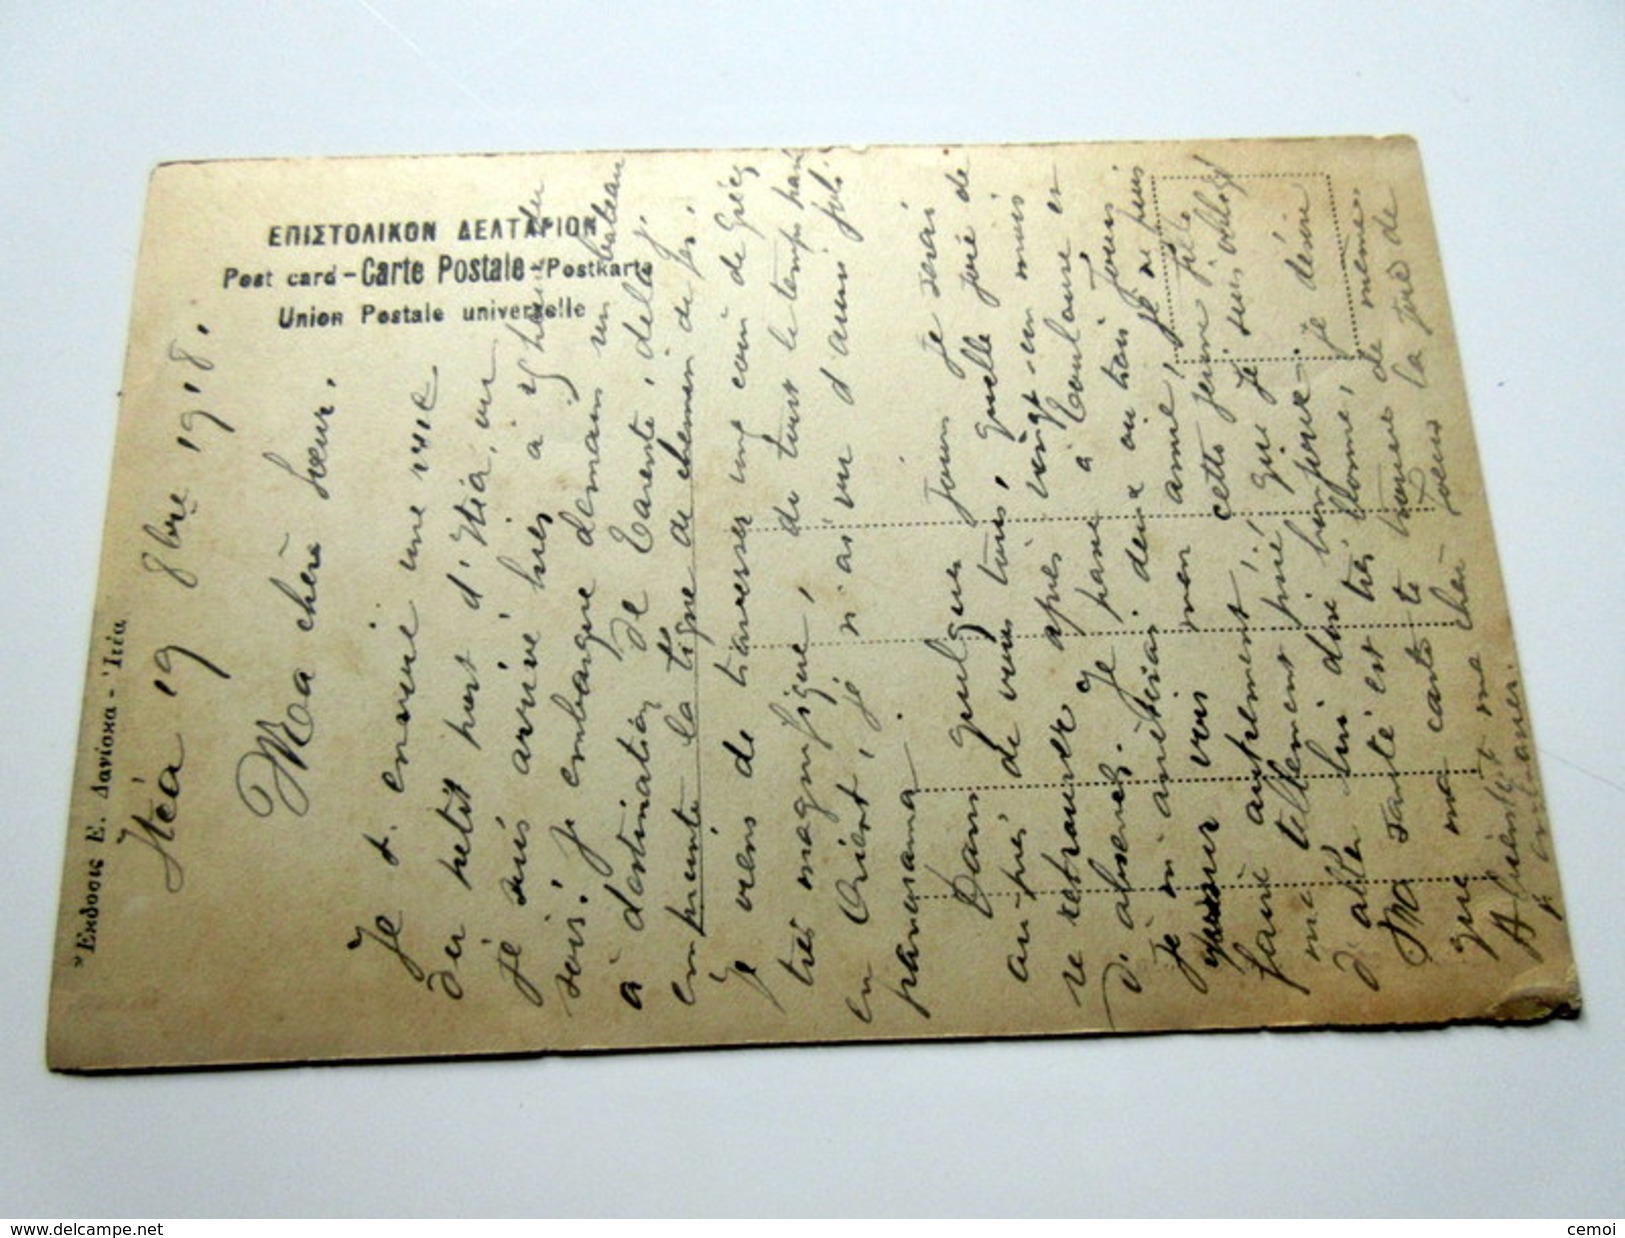 Ἔκδοσις Ε. Δανίσκα - Ἰτέα
ΕΠΙΣΤΟΛΙΚΟΝ ΔΕΛΤΑΡΙΟΝ
Post card - Carte Postale - Postkarte
Union Postale universelle
Itéa 19 8bre 1918.
Ma chère Sœur.
Je t'envoie une vue
du petit port d'Itéa, où
je suis arrivé hier à 9 heures du
soir. Je embarque demain un bateau
à destination de Tarente, de là j'
emprunte la ligne de chemin de fer.
Je viens de traverser une coin de Grèce
très magnifique, de tout le temps
en Orient, je n'ai vu d'aussi joli
panorama.
Dans quelques jours je serai
auprès de vous tous, quelle joie de
se retrouver après vingt-un mois
d'absence. Je passe à Toulouse et
je m'arrêterai deux ou trois jours
pour voir mon amie, je ne puis
faire autrement, cette jeune fille
m'a tellement prié, que je suis obligé
d'aller lui dire bonjour.
Ma santé est très bonne, je désire
que ma carte te trouve de même
cher tous la joie de
A bientôt